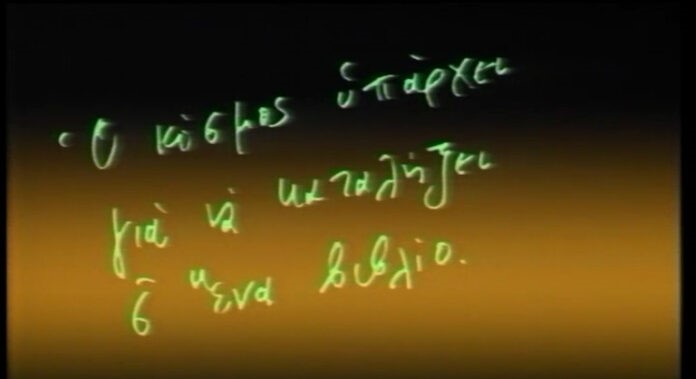 Ὁ κόσμος ὑπάρχει
γιὰ νὰ καταλήξει
σ' ἕνα βιβλίο.